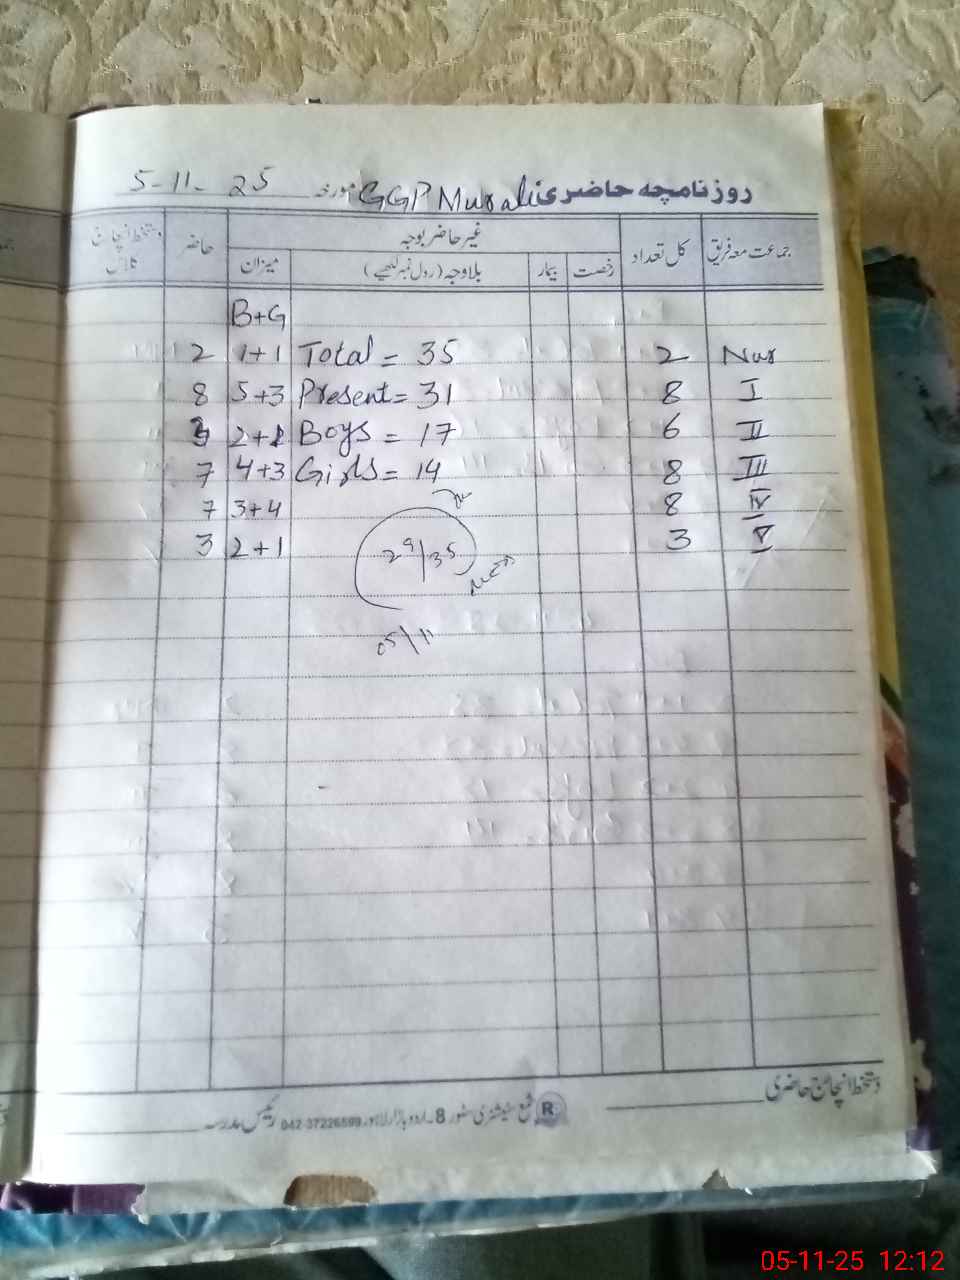 روزنامچہ حاضری GGP Murali مورخہ 5-11-25
جماعت معہ فریق کل تعداد غیر حاضر بوجہ حاضر دستخط انچارج کلاس
رخصت بیمار بلاوجہ (رول نمبر لکھیے) میزان
B+G
Nur 2 Total = 35 1+1 2
I 8 Present = 31 5+3 8
II 6 Boys = 17 2+2
III 8 Girls = 14 4+3 7
IV 8 3+4 7
V 3 2+1 3
29/35
05/11
دستخط انچارج حاضری
شمع سٹیشنری سٹور 8۔اردو بازار لاہور 042-37226599 رئیس مدرسہ
R
05-11-25 12:12